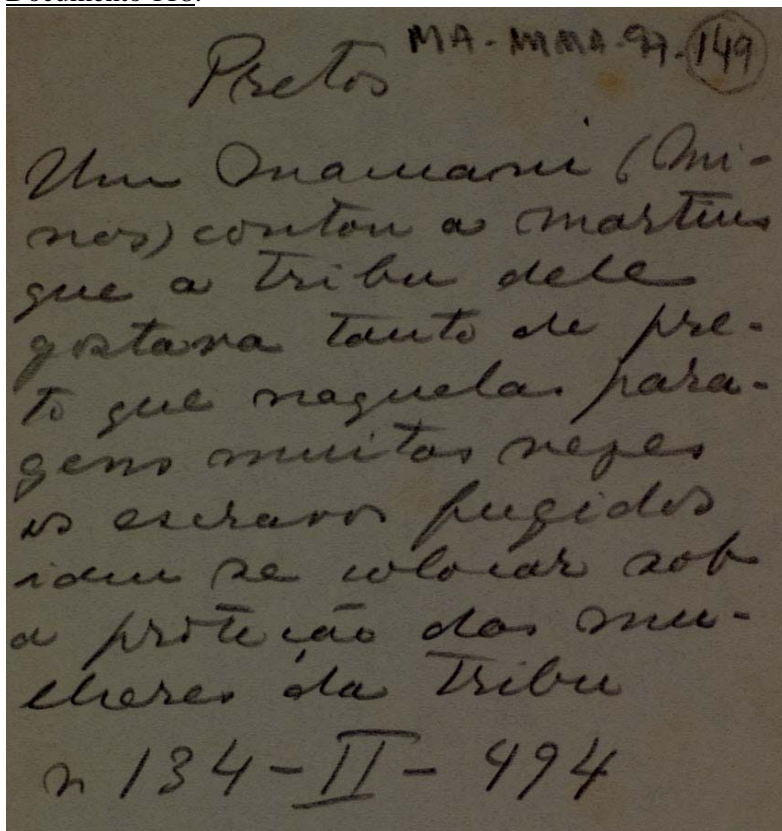 MA-MMA-97-149
Pretos
Um Mamani (Mi-
nas) contou a Martius
que a tribu dele
gostava tanto de pre-
to que naquelas para-
gens muitas vezes
os escravos fugidos
idem se colocar sob
a proteção das mu-
lheres da tribu
n 134-II-494